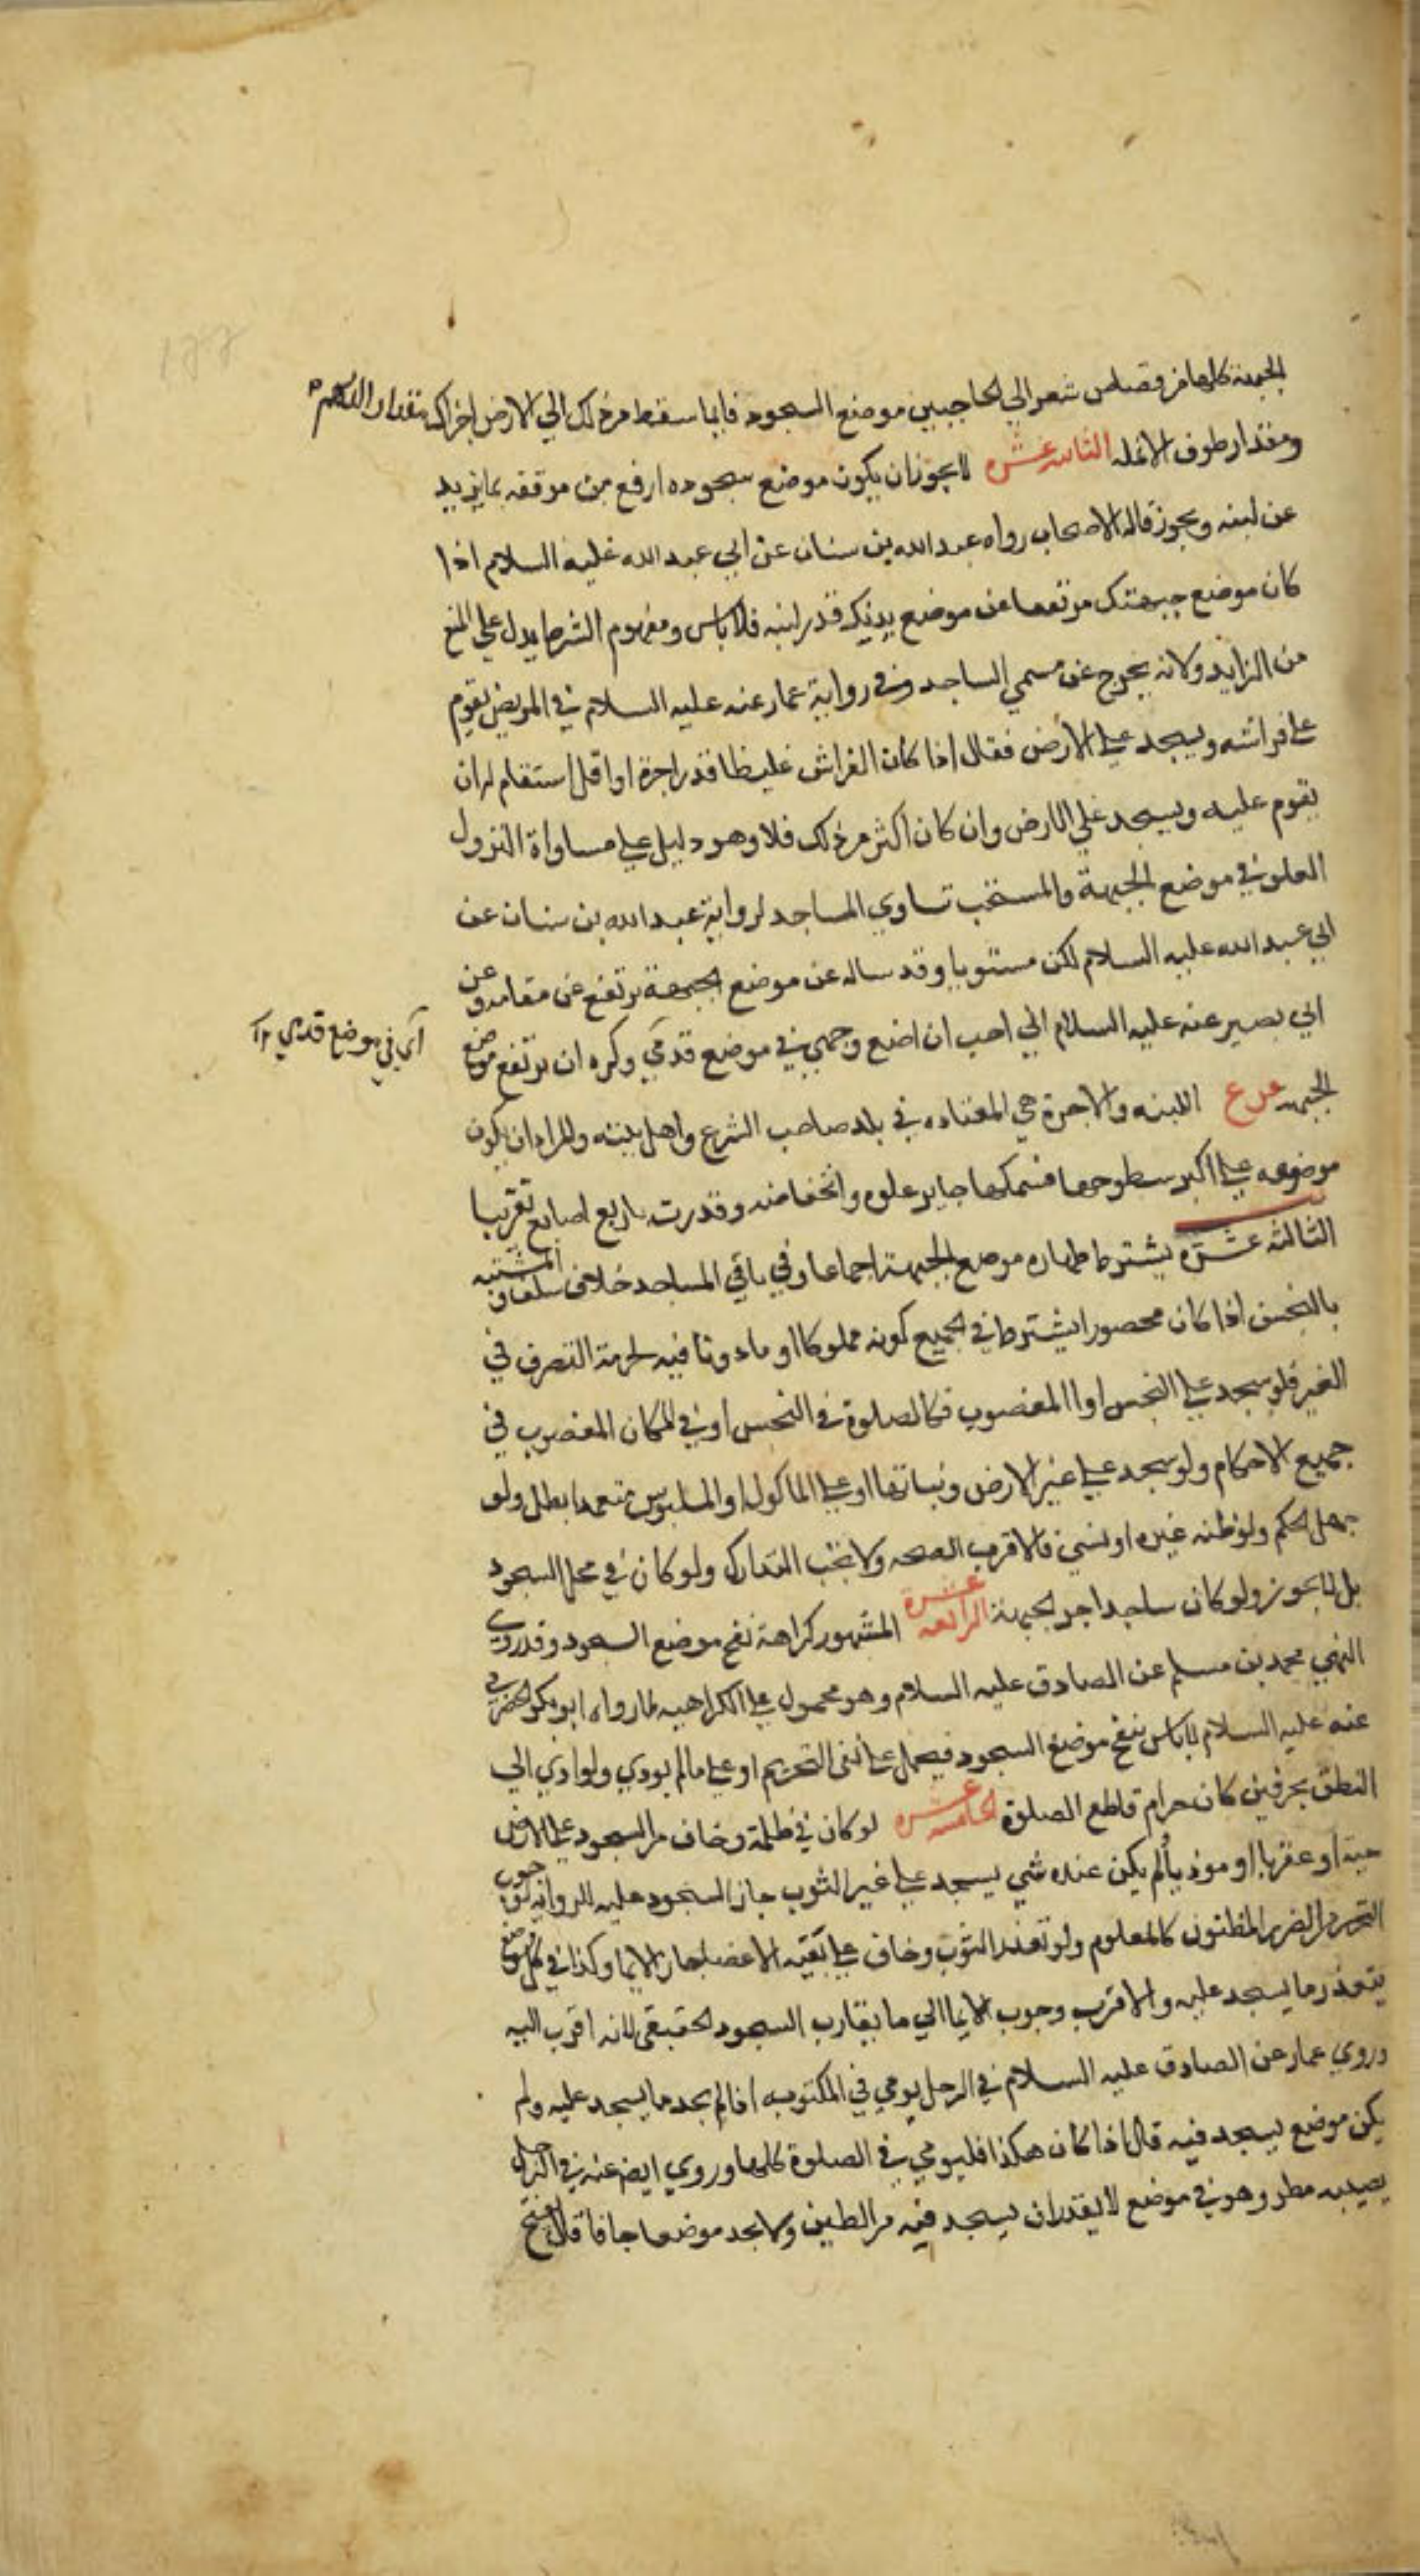 الجبهة كلها من قصاص شعر الي الحاجبين موضع السجود فايما سقط من ذلك الي الارض اجزاك مقدار الدرهم
ومقدار طرف الانمله الثانيه عشره لا يجوز ان يكون موضع سجوده ارفع من موقفه بما يزيد
عن لبنه ويجوز قاله الاصحاب رواه عبد الله بن سنان عن ابي عبد الله عليه السلام اذا
كان موضع جبهتك مرتفعا عن موضع يديك قدر لبنه فلا باس ومفهوم الشرط يدل علي المنع
من الزايد ولانه يخرج عن مسمي الساجد وفي رواية عمار عنه عليه السلام في المريض يقوم
علي فراشه ويسجد علي الارض فقال اذا كان الفراش غليظا قدر اجرة او اقل استقام له ان
يقوم عليه ويسجد علي الارض وان كان اكثر من ذلك فلا وهو دليل علي مساواة النزول
العلو في موضع الجبهة والمستحب تساوي المساجد لرواية عبد الله بن سنان عن
ابي عبد الله عليه السلام لكن مستويا وقد ساله عن موضع الجبهة يرتفع عن مقامه وعن
ابي بصير عنه عليه السلام اني احب ان اضع وجهي في موضع قدمي وكره ان يرتفع موضع
اي في موضع قدمي
الجبهه فرع اللبنه والاجرة هي المعتاده في بلد صاحب الشرع واهل بيته والمراد ان يكون
موضوعه علي اكبر سطوحها فسمكها جايز علوه وانخفاضه وقدرت باربع اصابع تقريبا
الثالثه عشره يشترط طهاره موضع الجبهة اجماعا وفي باقي المساجد خلاف سلف والمشتبه
بالنجس اذا كان محصورا يشترط في الجميع كونه مملوكا او ماذونا فيه لحرمة التصرف في
الغير فلو سجد علي النجس او المغصوب فكالصلوة في النجس او في المكان المغصوب في
جميع الاحكام ولو سجد علي غير الارض ونباتها او علي الماكول او الملبوس متعمدا بطل ولو
جهل الحكم ولو ظنه غيره او نسي فالاقرب الصحه ولا يجب التدارك ولو كان في محل السجود
بل لا يجوز ولو كان ساجدا جر الجبهة الرابعه عشرة المشهور كراهة نفخ موضع السجود وقد روي
النهي محمد بن مسلم عن الصادق عليه السلام وهو محمول علي الكراهيه لما رواه ابو بكر الحضرمي
عنه عليه السلام لا باس بنفخ موضع السجود فيحمل علي نفي التحريم او علي ما لم يودي ولو ادي الي
النطق بحرفين كان حرام قاطع الصلوة الخامسه عشره لو كان في ظلمة وخاف من السجود علي الارض
حية او عقربا او موذيا ولم يكن عنده شي يسجد علي غير الثوب جاز السجود عليه للروايه لوجوب
التحرز الضرر المظنون كالمعلوم ولو تعذر الثوب وخاف علي بقيه الاعضا جاز الايما وكذا في كل موضع
يتعذر ما يسجد عليه والاقرب وجوب الايما الي ما يقارب السجود الحقيقي لانه اقرب اليه
وروي عمار عن الصادق عليه السلام في الرجل يومي في المكتوبه اذا لم يجد ما يسجد عليه ولم
يكن موضع يسجد فيه قال اذا كان هكذا فليومي في الصلوة كلها وروي ايضا عنه في الرجل
يصيبه مطر وهو في موضع لا يقدر ان يسجد فيه من الطين ولا يجد موضعا جافا قال يفتتح